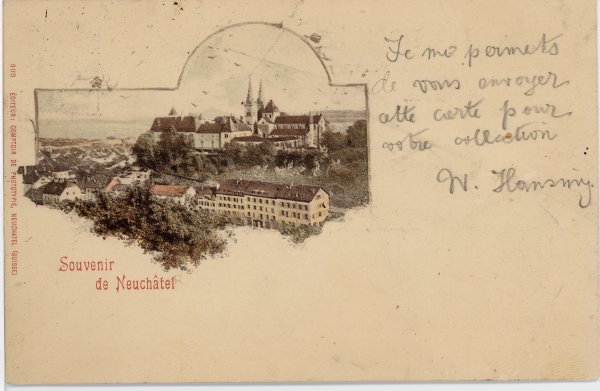 Je me permets
de vous envoyer
cette carte pour
votre collection
W. Hansmy.
Souvenir
de Neuchâtel
805 ÉDITEUR: COMPTOIR DE PHOTOTYPIE, NEUCHATEL (SUISSE)